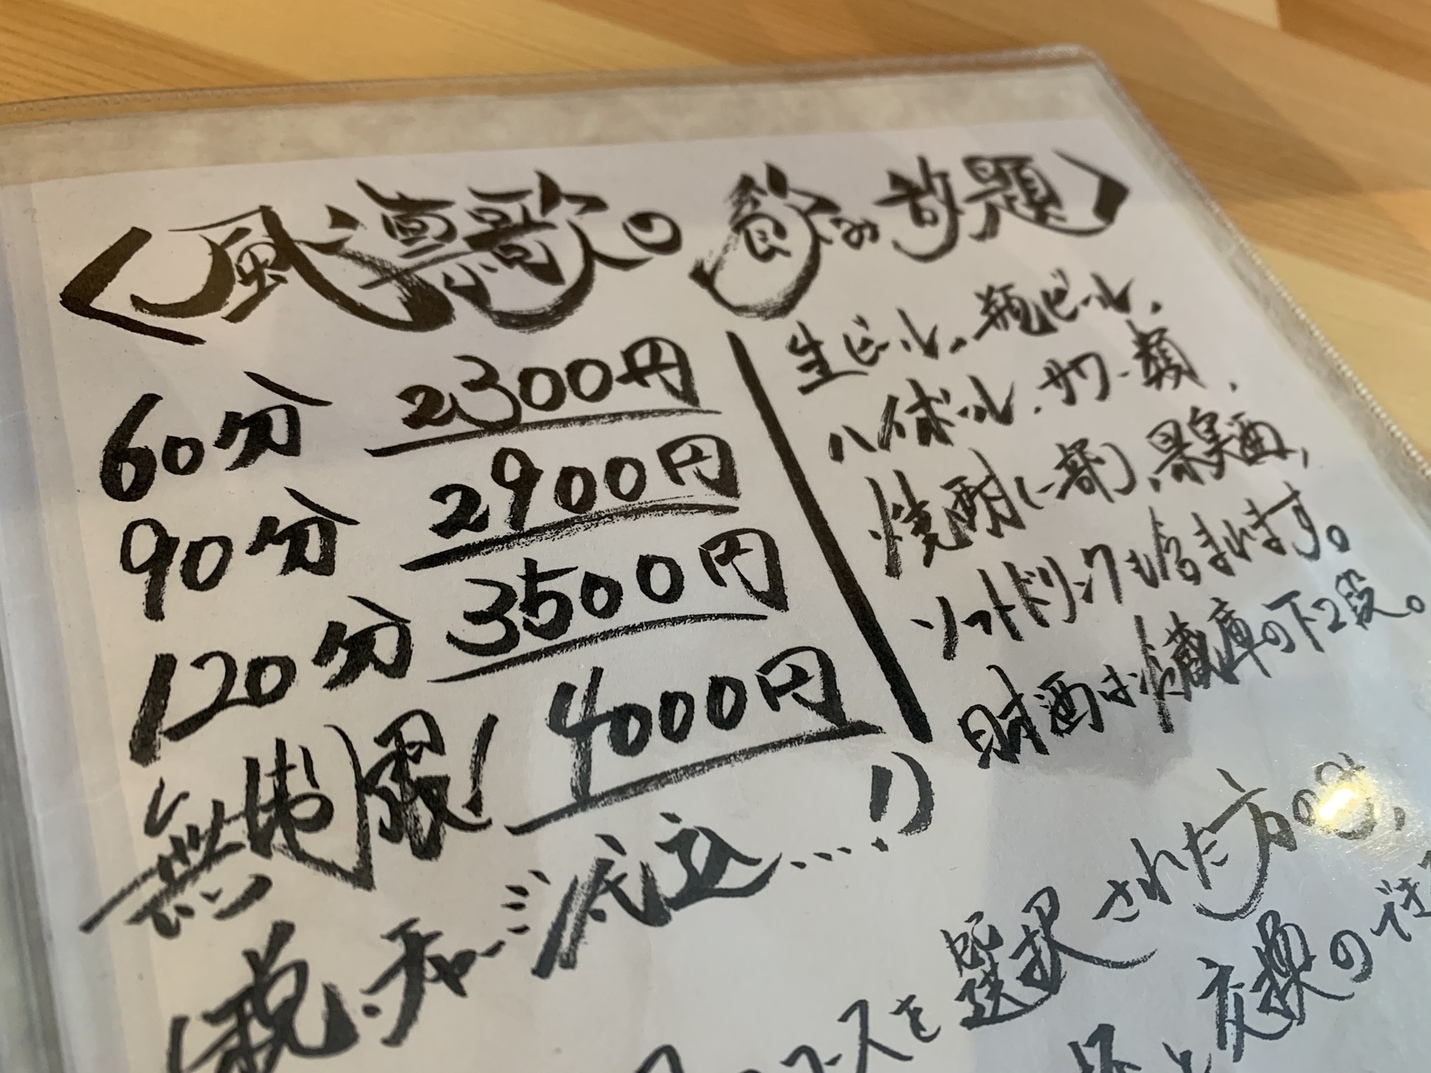 〈風凛歌の飲み放題〉
60分 2300円
90分 2900円
120分 3500円
無制限! 4000円
(税、チャージ 込...!)
生ビール、瓶ビール、
ハイボール、サワー類、
焼酎(一部)、果実酒、
ソフトドリンクも含まれます。
日本酒は冷蔵庫の下2段。
コースを選択された方のみ、
と交換の